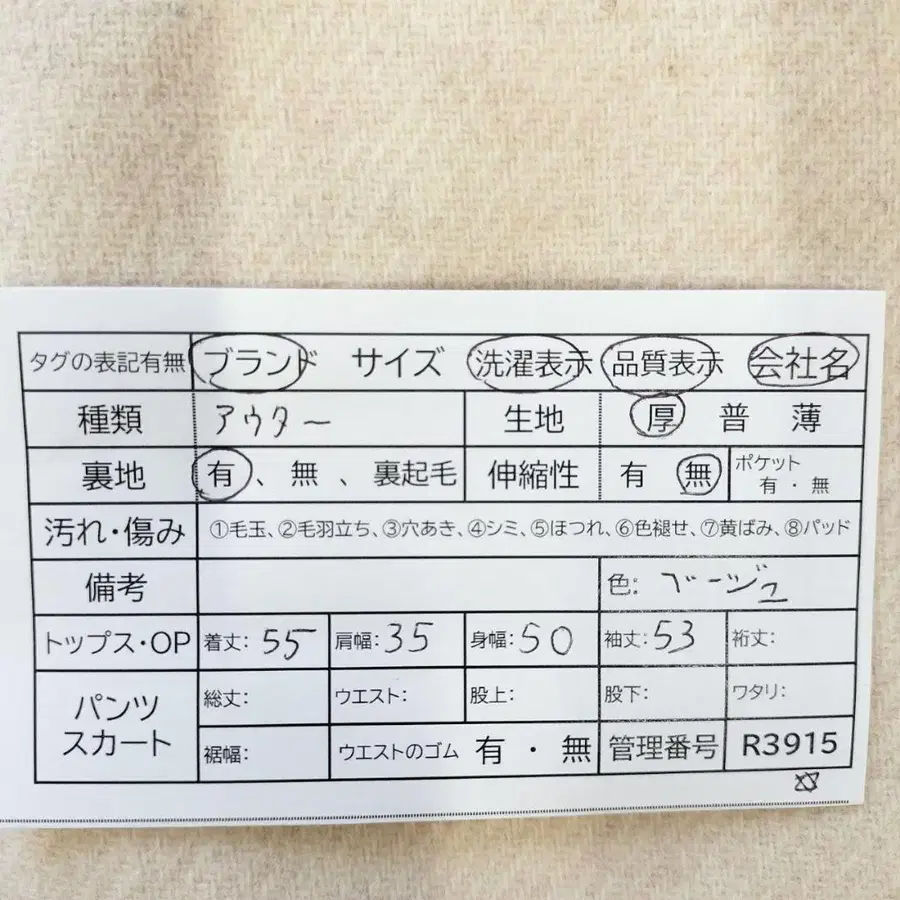 タグの表記有無 ブランド サイズ 洗濯表示 品質表示 会社名
種類 アウター 生地 厚 普 薄
裏地 有、無、裏起毛 伸縮性 有 無 ポケット 有・無
汚れ・傷み ①毛玉、②毛羽立ち、③穴あき、④シミ、⑤ほつれ、⑥色褪せ、⑦黄ばみ、⑧パッド
備考 色: ベージュ
トップス・OP 着丈: 55 肩幅: 35 身幅: 50 袖丈: 53 裄丈:
パンツ スカート 総丈: ウエスト: 股上: 股下: ワタリ:
裾幅: ウエストのゴム 有・無 管理番号 R3915